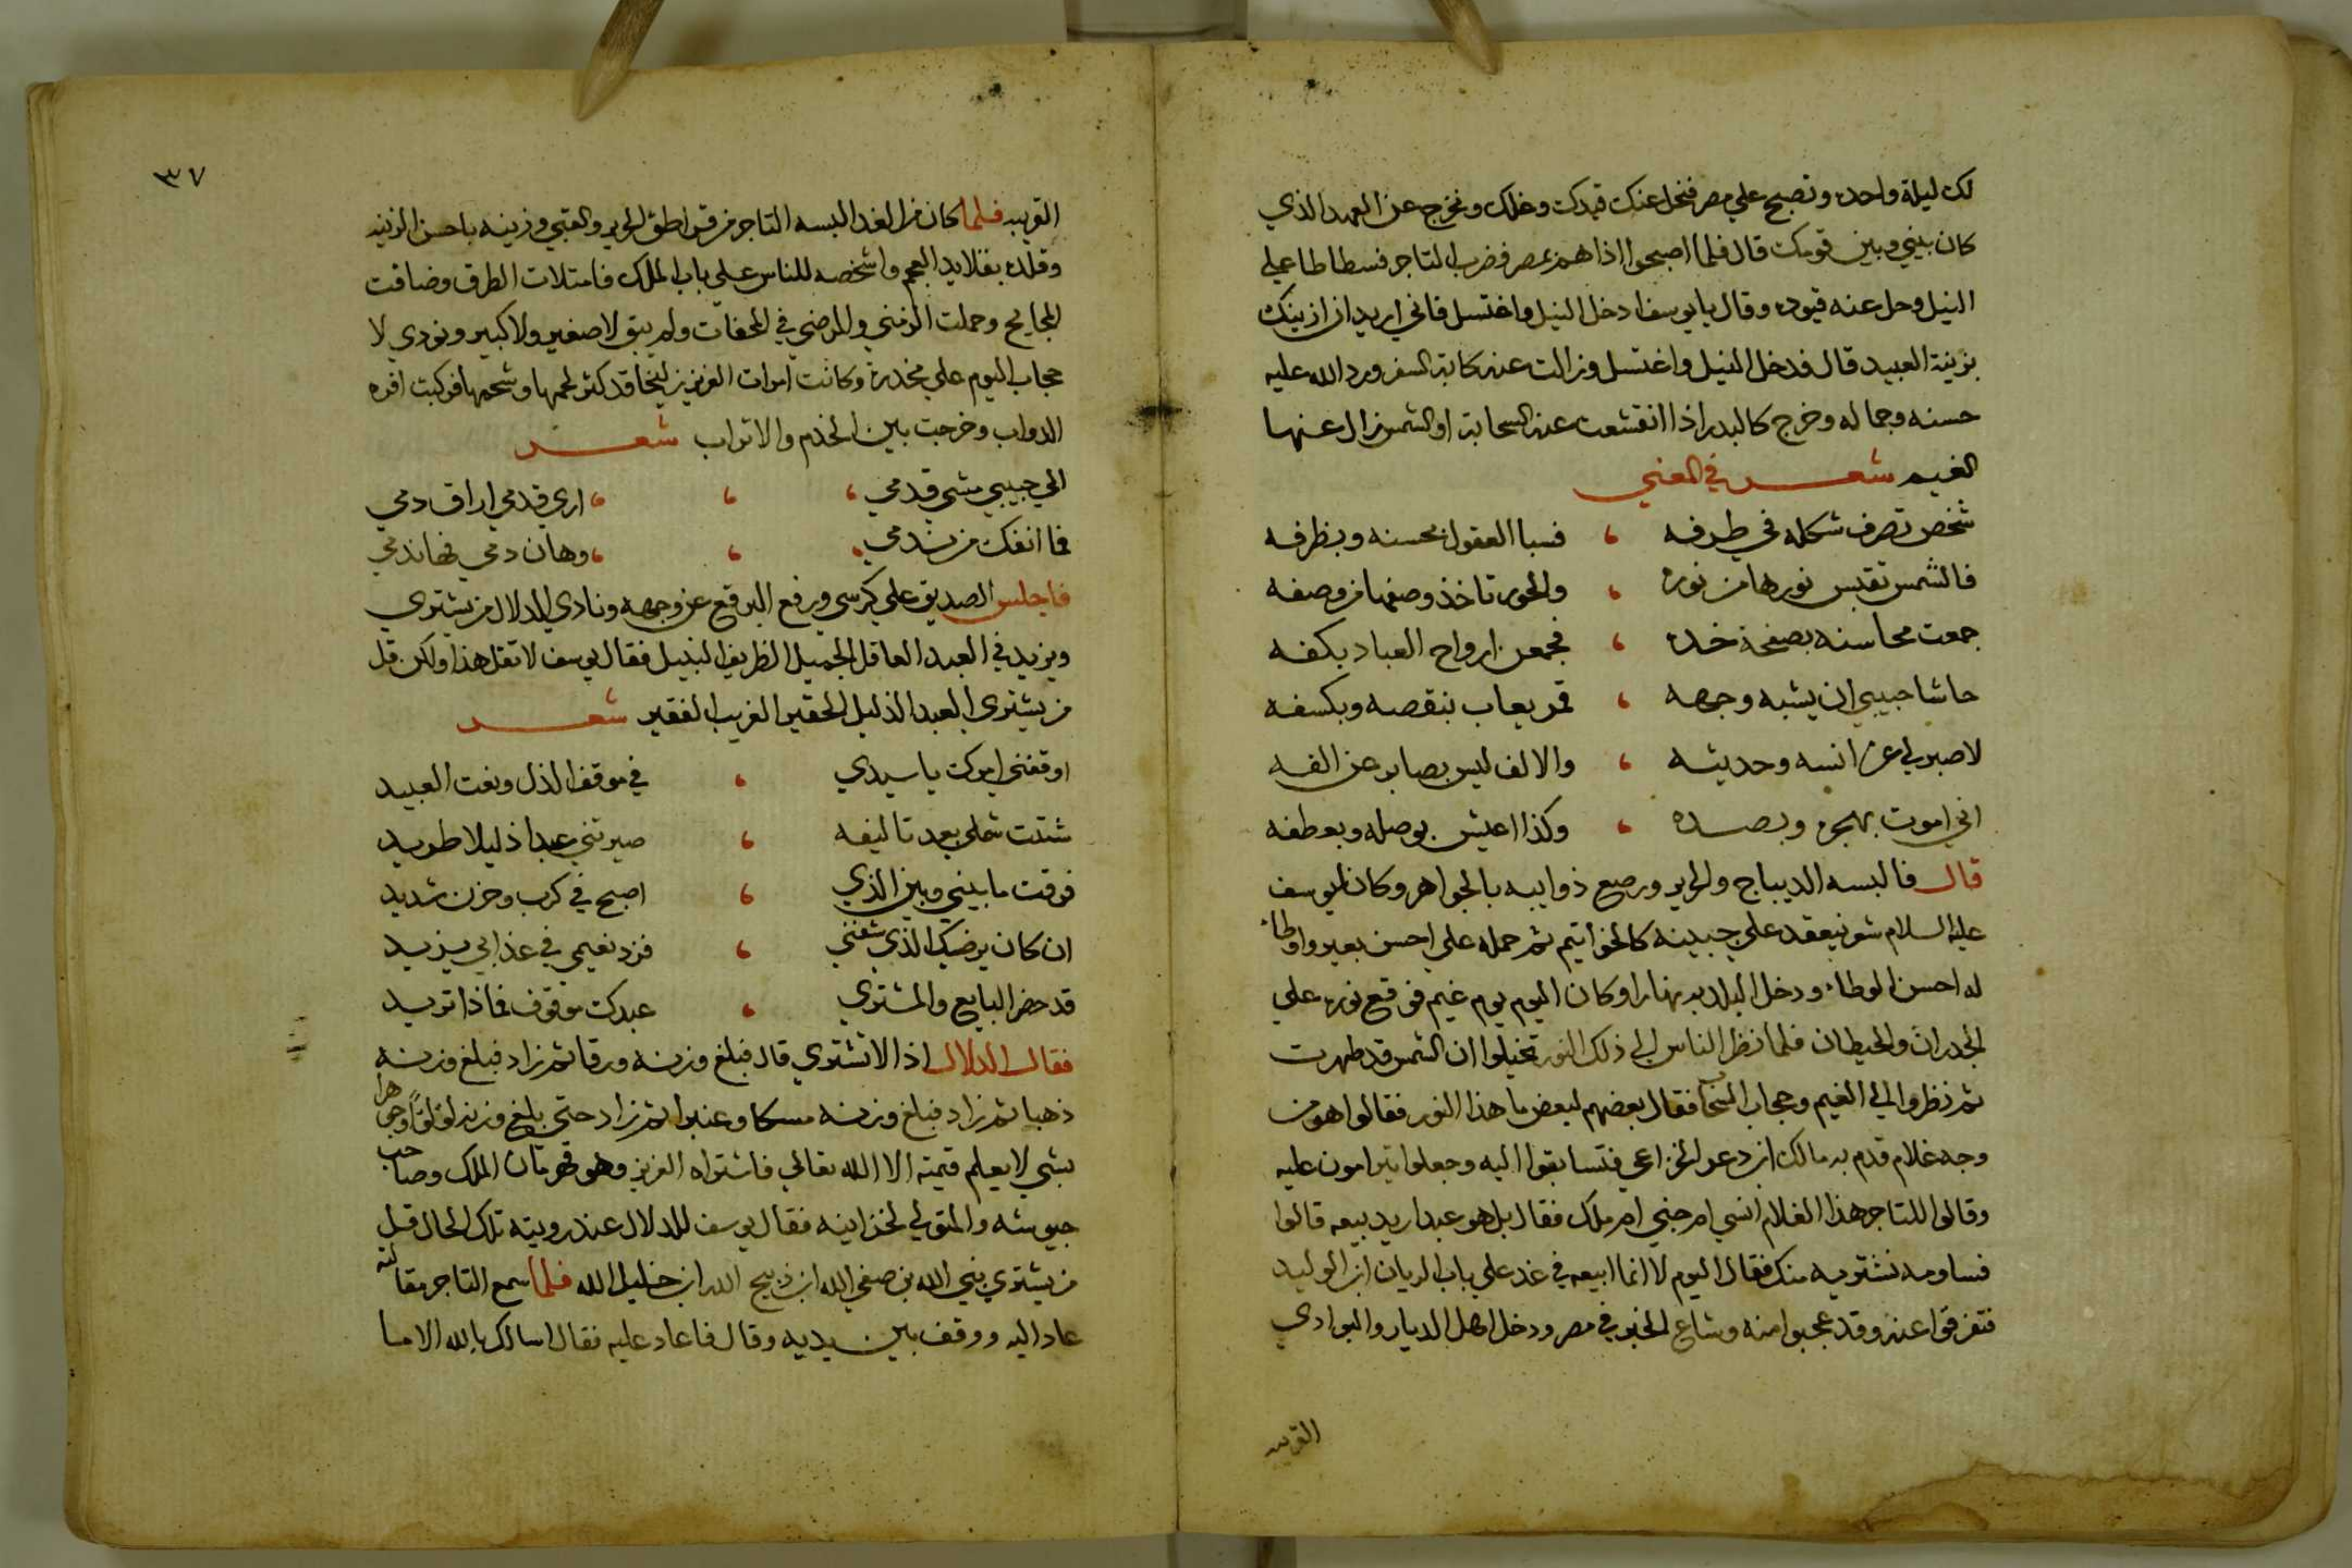 لك ليلة واحده وتصبح علي مصر فنحل عنك قيدك وغلك ونخرج عن العهد الذي
كان بيني وبين قومك قال فلما اصبحوا اذا هم بمصر فضرب التاجر فسطاطا علي
النيل وحل عنه قيوده وقال يا يوسف ادخل النيل واغتسل فاني اريد ان ازينك
بزينة العبيد قال فدخل النيل واغتسل وزالت عنه كابة السفر ورد الله عليه
حسنه وجماله وخرج كالبدر اذا انقشعت عنه السحابة او الشمس زال عنها
الغيم شعر في المعني
شخص تصرف شكله في طرفه ، فسبا العقول بحسنه وبظرفه
فالشمس تقبس نورها من نوره ، والحور تاخذ وصفها من وصفه
جمعت محاسنه بصفحة خده ، فجمعن ارواح العباد بكفه
حاشا حبيبي ان يشبه وجهه ، قمر يعاب بنقصه وبكسفه
لا صبر لي عن انسه وحديثه ، والالف ليس بصابر عن الفه
اني اموت بهجره وبصده ، وكذا اعيش بوصله وبعطفه
قال فالبسه الديباج والحرير ورصع ذوايبه بالجواهر وكان ليوسف
عليه السلام شعر فيعقد علي جبينه كالخواتيم ثم حمله علي احسن بعير واوطاء
له احسن الوطاء ودخل البلد به نهارا وكان اليوم يوم غيم فوقع نوره علي
الجدران والحيطان فلما نظر الناس الي ذلك النور تخيلوا ان الشمس قد ظهرت
ثم نظروا الي الغيم وحجاب السحاب فقال بعضهم لبعض ما هذا النور فقالوا هو من
وجه غلام قدم به مالك ابن دعر الخزاعي فتسابقوا اليه وجعلوا يترامون عليه
وقالوا للتاجر هذا الغلام انسي ام جني ام ملك فقال بل هو عبد اريد بيعه قالوا
فساومه نشتريه منك فقال اليوم لا انما ابيعه في غد علي باب الريان ابن الوليد
فتفرقوا عنه وقد عجبوا منه وشاع الخبر في مصر ودخل اهل الديار والبوادي
القريبه
٣٧
القريبه فلما كان من الغد البسه التاجر من قراطق الحرير والقبي وزينه باحسن الزينه
وقلده بقلايد العجم واشخصه للناس علي باب الملك فامتلات الطرق وضاقت
وحملت الزمني والمرضي في المحفات ولم يبق لا صغير ولا كبير ونودي لا
حجاب اليوم علي مخدرة وكانت امرات العزيز زليخا قد كثر لحمها وشحمها فركبت افره
الدواب وخرجت بين الخدم والاتراب شعر
الي حبيبي مشي قدمي ، ، ، اري قدمي اراق دمي
فما انفك من ندمي ، ، ، وهان دمي فها ندمي
فاجلس الصديق علي كرسي ورفع البرقع عن وجهه ونادي الدلال من يشتري
ويزيد في العبد العاقل الجميل الظريف النبيل فقال يوسف لا تقل هذا ولكن قل
من يشتري العبد الذليل الحقير الغريب الفقير شعر
اوقفني امرك يا سيدي ، في موقف الذل ونعت العبيد
شتت شملي بعد تاليفه ، صيرتني عبدا ذليلا طريد
فرقت ما بيني وبين الذي ، اصبح في كرب وحزن شديد
ان كان يرضيك الذي شفني ، فزد نعيمي في عذابي يزيد
قد حضر البايع والمشتري ، عبدك موقوف فماذا تريد
فقال الدلال اذا لا تشتري قال فبلغ وزنه ورقا ثم زاد فبلغ وزنه
ذهبا ثم زاد فبلغ وزنه مسكا وعنبرا ثم زاد حتي بلغ وزنه لؤلؤا وجوهرا
بشي لا يعلم قيمته الا الله تعالي فاشتراه العزيز وهو قهرمان الملك وصاحب
جيوشه والمتولي لخزاينه فقال يوسف للدلال عند رويته تلك الحال قل
من يشتري نبي الله بن صفي الله ابن ذبيح الله ابن خليل الله فلما سمع التاجر مقالته
عاد اليه ووقف بين يديه وقال فاعاد عليه فقال اسالك بالله الا ما